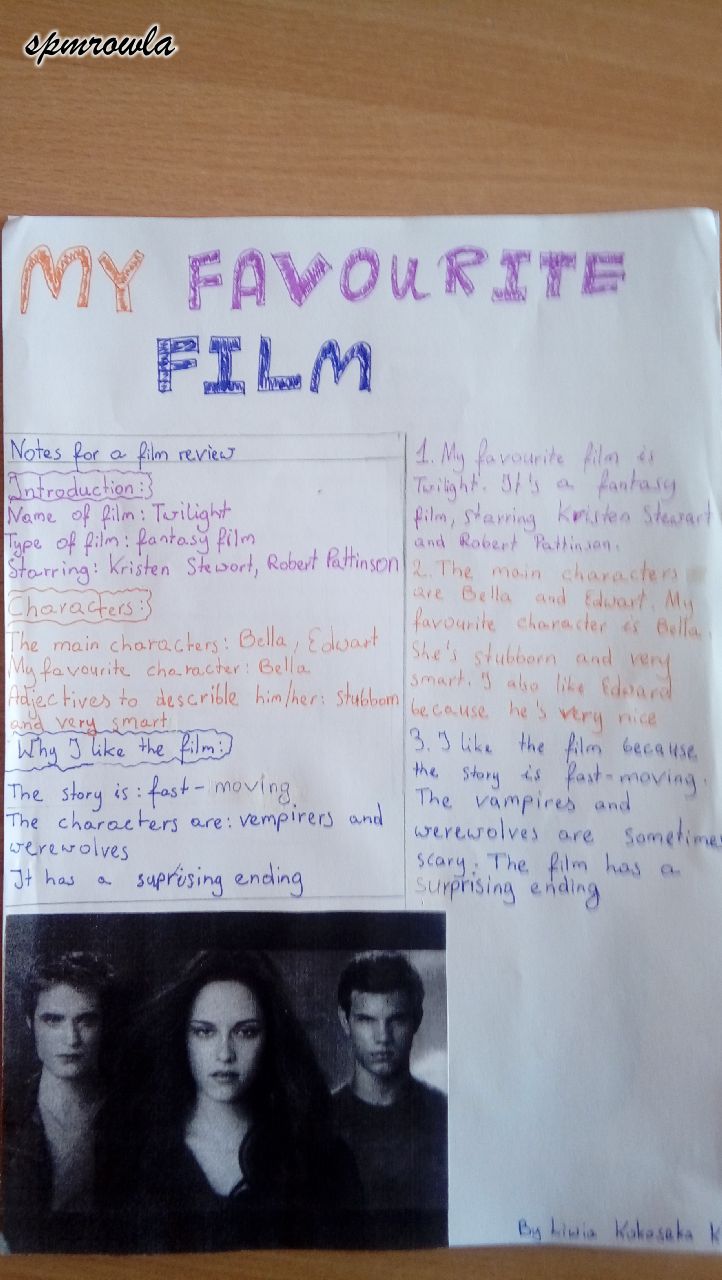 spmrowla
MY FAVOURITE
FILM
Notes for a film review
Introduction:
Name of film: Twilight
Type of film: fantasy film
Starring: Kristen Stewort, Robert Pattinson
Characters:
The main characters: Bella, Edwart
My favourite character: Bella
Adjectives to describle him/her: stubborn
and very smart
Why I like the film:
The story is: fast-moving
The characters are: vempirers and
werewolves
It has a suprising ending
1. My favourite film is
Twilight. It's a fantasy
film, starring Kristen Stewart
and Robert Pattinson.
2. The main characters
are Bella and Edwart. My
favourite character is Bella.
She's stubborn and very
smart. I also like Edward
because he's very nice
3. I like the film because
the story is fast-moving.
The vampires and
werewolves are sometimes
scary. The film has a
surprising ending
By Liwia